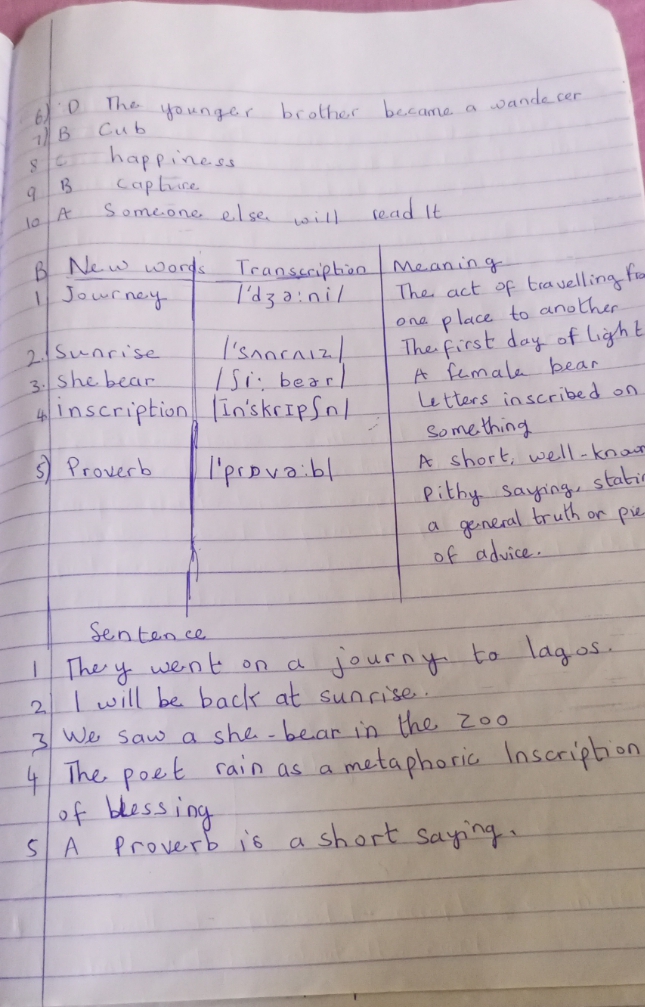 6) D The younger brother became a wanderer
7) B Cub
8 C happiness
9 B capture
10 A Someone else will read It
B New words Transcription Meaning
1. Journey /'dʒə:ni/ The act of travelling fro
one place to another
2. Sunrise /'sʌnrʌɪz/ The first day of light
3. she bear /ʃi: bear/ A female bear
4 inscription /In'skrɪpʃn/ Letters inscribed on
something
5) Proverb /'prɒvə:b/ A short, well-known
Pithy saying, statin
a general truth or pie
of advice.
Sentence
1 They went on a journy to lagos.
2 I will be back at sunrise.
3 We saw a she-bear in the zoo
4 The poet rain as a metaphoric Inscription
of blessing
5 A Proverb is a short saying.